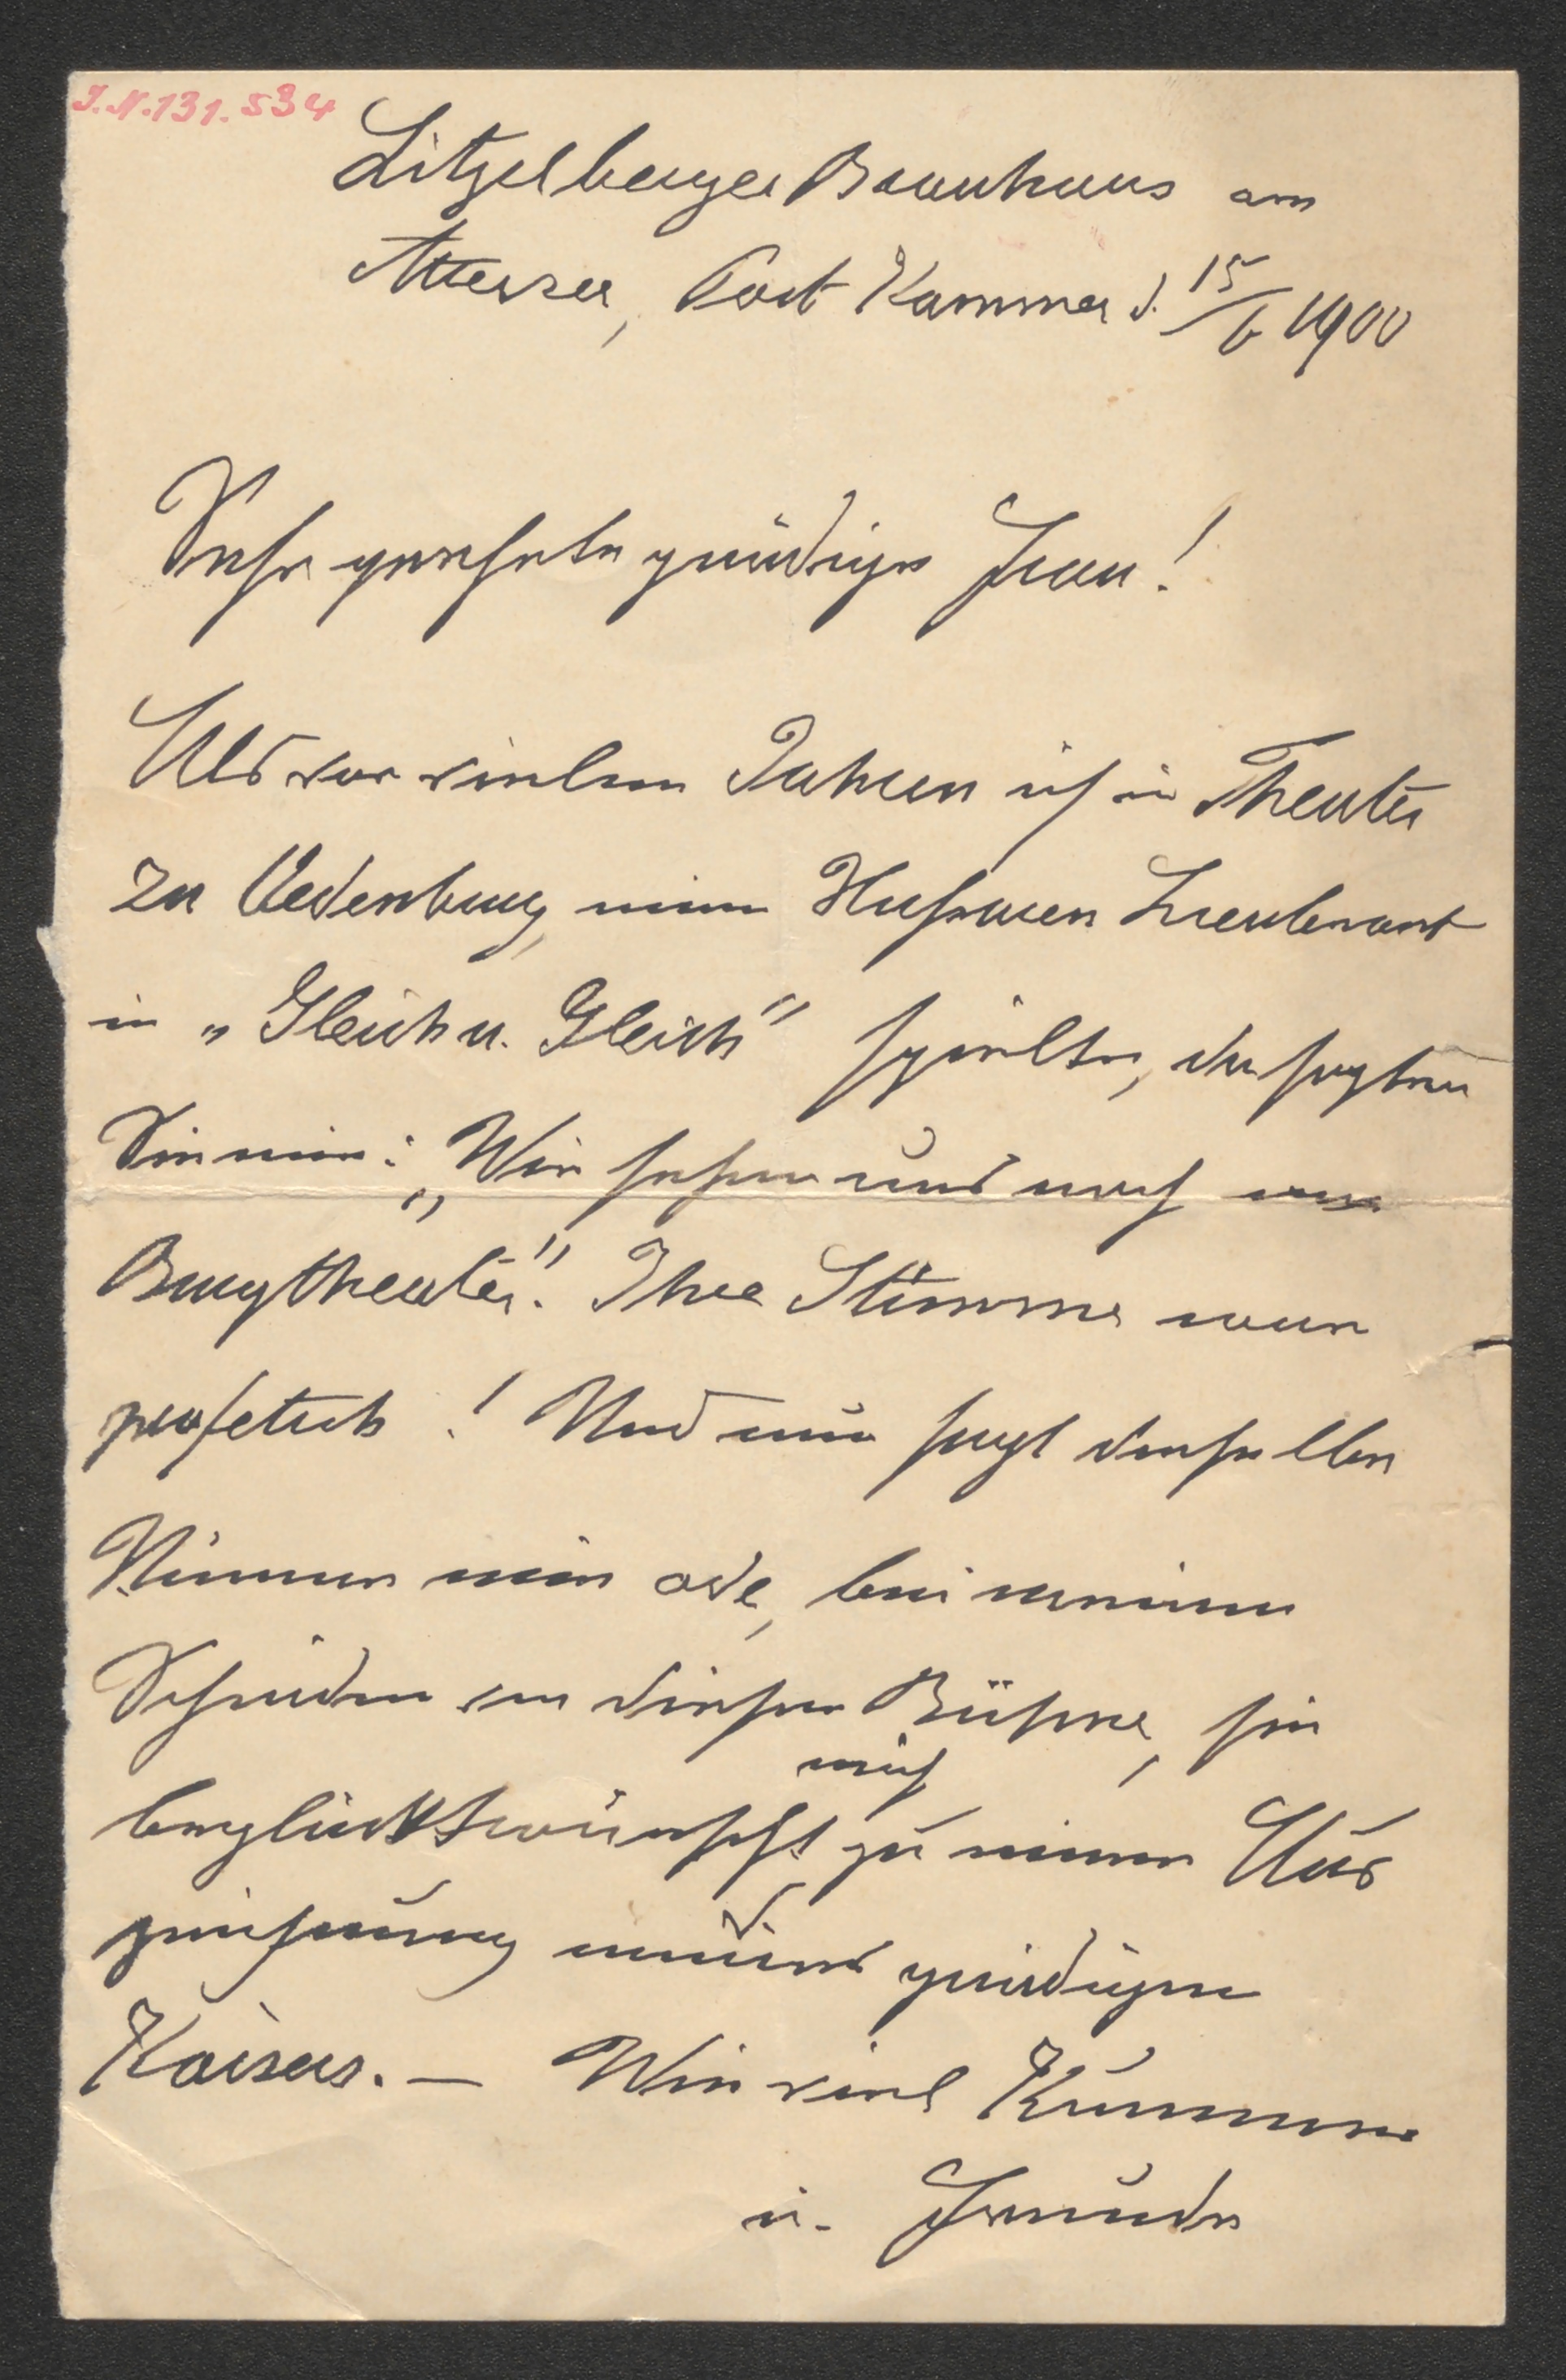 I.N.131.534
Litzelberger Brauhaus am
Attersee, Post Kammer d. 15/6 1900
Sehr geehrte gnädige Frau!
Als vor vielen Jahren ich in Theater
zu Oedenburg, einen Husaren Lieutenant
in „Gleich u. Gleich" spielte, da sagten
Sie mir: „Wir sehen uns noch am
Burgtheater". Ihre Stimme war
profetisch! Und nun sagt dieselbe
Stimme mir ade, bei meinem
Scheiden von dieser Bühne, sie
beglückwünscht mich zu einer Aus
zeichnung meines gnädigen
Kaisers. — Wie viel Kummer
u. Freude